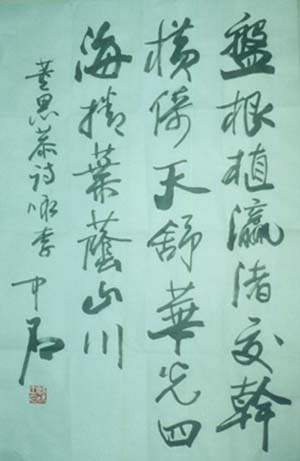 盤根植瀛渚交幹
横倚天舒華光四
海捲葉蔭山川
董思恭詩咏李
中